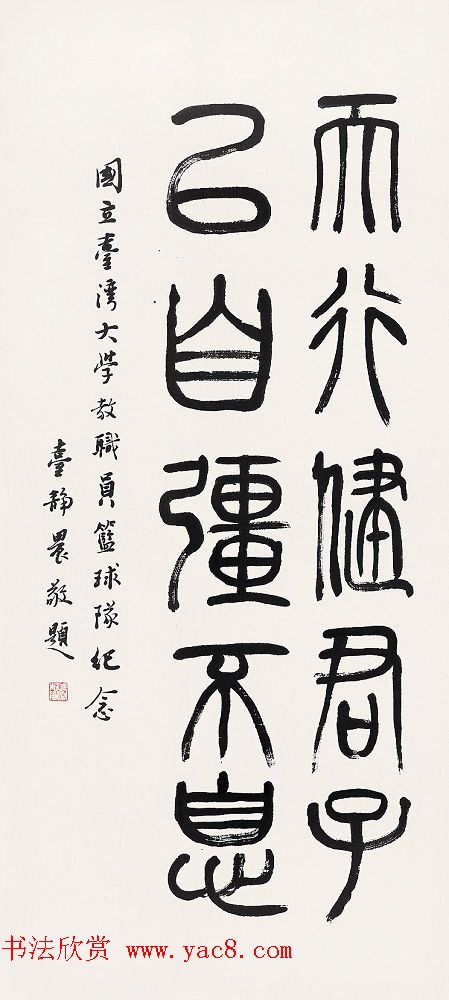 天行健君子
㠯自彊不息
國立臺灣大学教職員籃球隊紀念
臺静農敬題
书法欣赏 www.yac8.com